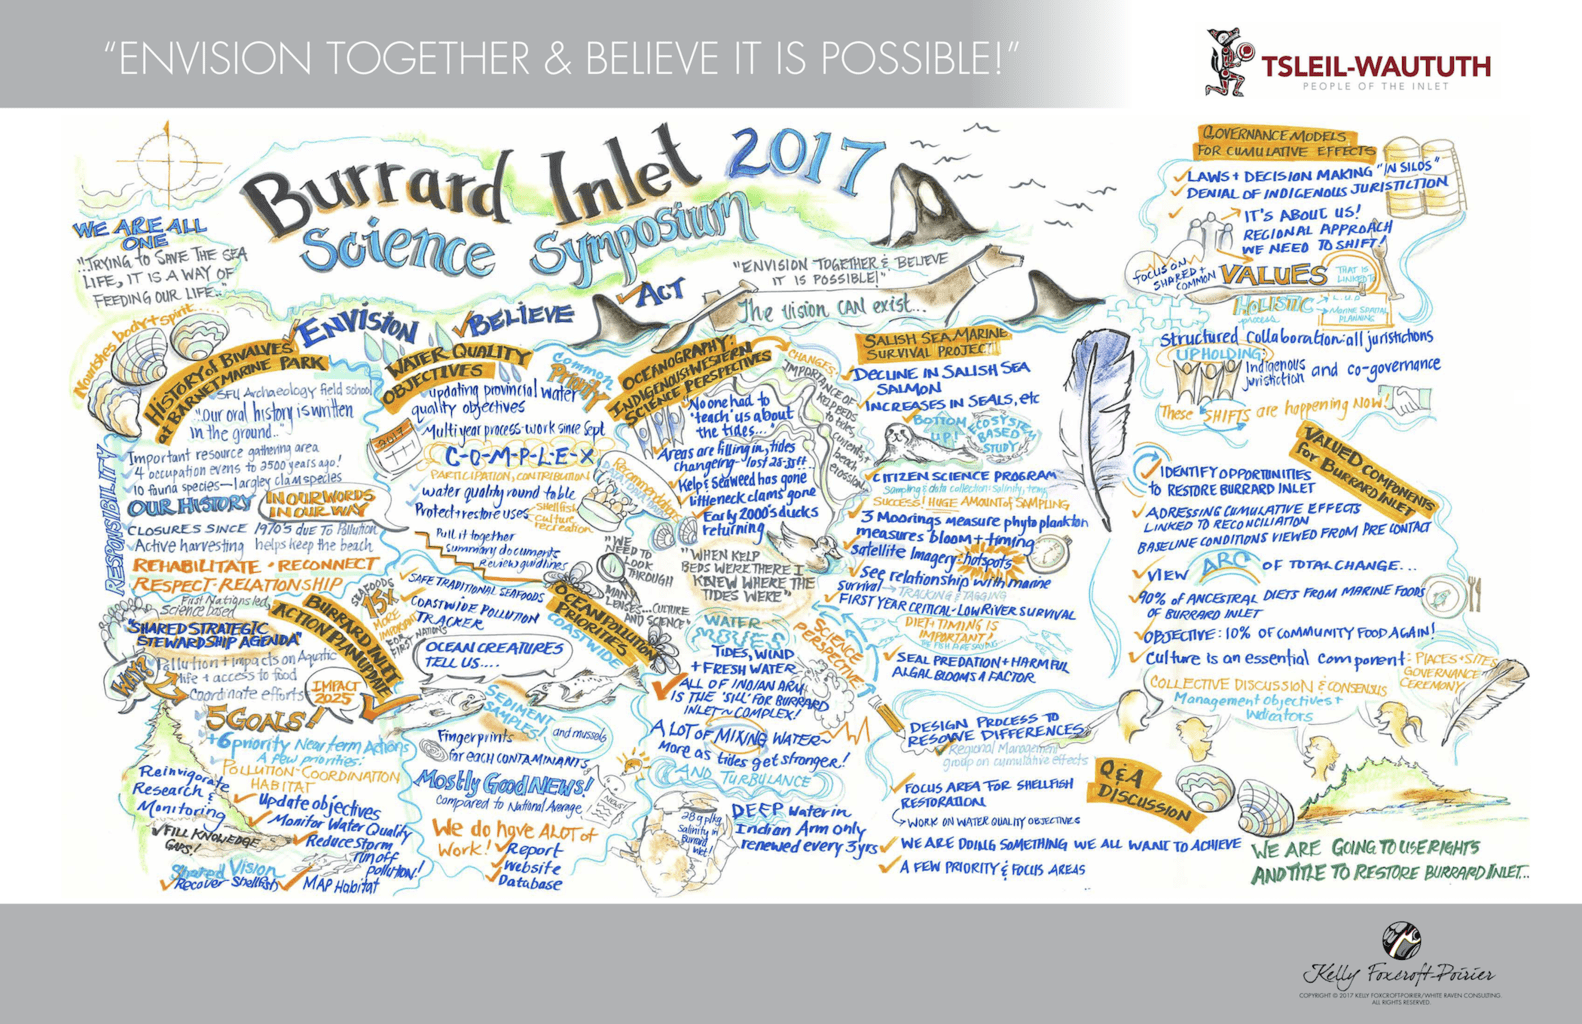 "ENVISION TOGETHER & BELIEVE IT IS POSSIBLE!"
TSLEIL-WAUTUTH
PEOPLE OF THE INLET
Burrard Inlet 2017
Science Symposium
WE ARE ALL
ONE
"TRYING TO SAVE THE SEA
LIFE, IT IS A WAY OF
FEEDING OUR LIFE.."
Nourishes body + spirit
ENVISION
BELIEVE
ACT
"ENVISION TOGETHER & BELIEVE
IT IS POSSIBLE!"
The vision CAN exist...
HISTORY of BIVALVES
at BARNET MARINE PARK
SFU Archaeology field school
"Our oral history is written
in the ground.."
Important resource gathering area
4 occupation evens to 2500 years ago!
10 fauna species—largley clam species
OUR HISTORY
IN OUR WORDS
IN OUR WAY
CLOSURES SINCE 1970's DUE TO Pollution
Active harvesting helps keep the beach
REHABILITATE • RECONNECT
RESPECT • RELATIONSHIP
RESPONSIBILITY
First Nations led,
science based
"SHARED STRATEGIC
STEWARDSHIP AGENDA"
BURRARD INLET
ACTION PLAN UPDATE
WHY?
Pollution + impacts on Aquatic
life + access to food
Coordinate efforts
IMPACT
2025
5 GOALS!
+6 priority Near term Actions
A few priorities:
POLLUTION-COORDINATION
HABITAT
Reinvigorate
Research &
Monitoring
Update objectives
Monitor Water Quality
Reduce storm
runoff
pollution!
FILL KNOWLEDGE
GAPS!
Shared Vision
Recover Shellfish
MAP Habitat
WATER QUALITY
OBJECTIVES
Common
Priority
updating provincial water
quality objectives
2017
Multiyear process-work since Sept
C-O-M-P-L-E-X
PARTICIPATION, CONTRIBUTION
water quality round table
Protect + restore uses
shellfish
culture
recreation
Pull it together
summary documents
Review guidlines
Recommendations
SEAFOODS
15x
MORE
IMPORTANT
FOR FIRST
NATIONS
SAFE TRADITIONAL SEAFOODS
COASTWIDE POLLUTION
TRACKER
OCEAN POLLUTION
PRIORITIES
COASTWIDE
OCEAN CREATURES
TELL US....
SEDIMENT
SAMPLES!
and mussels
Fingerprints
for each CONTAMINANTS
Mostly Good NEWS!
compared to National Average!
NEWS!
We do have A LOT of
Work!
Report
Website
Database
"WE
NEED TO
LOOK
THROUGH
MANY
LENSES...CULTURE
AND SCIENCE"
OCEANOGRAPHY:
INDIGENOUS + WESTERN
SCIENCE PERSPECTIVES
CHANGES:
IMPORTANCE OF
KELP BEDS
to tides,
currents +
beach
erosion
"No one had to
'teach' us about
the tides..."
Areas are filling in, tides
changeing - lost 28-35ft
Kelp & Seaweed has gone
littleneck clams gone
Early 2000's ducks
returning
"WHEN KELP
BEDS WERE THERE I
KNEW WHERE THE
TIDES WERE"
WATER
MOVES
TIDES, WIND
+ FRESH WATER
SCIENCE
PERSPECTIVE
ALL OF INDIAN ARM
IS THE 'SILL' FOR BURRARD
INLET ~ COMPLEX!
A LOT OF MIXING WATER~
More as tides get stronger!
AND TURBULANCE
28 g p/kg
Salinity in
Burrard
Inlet!
DEEP Water in
Indian Arm only
renewed every 3 yrs
SALISH SEA MARINE
SURVIVAL PROJECT
DECLINE IN SALISH SEA
SALMON
INCREASES IN SEALS, etc
BOTTOM
UP!
ECOSYSTEM
BASED
STUDY
CITIZEN SCIENCE PROGRAM
Sampling & data collection: salinity, temp,
Success! HUGE AMOUNT of SAMPLING
3 Moorings measure phytoplankton
measures bloom + timing
Satellite Imagery: hotspots
See relationship with marine
survival → TRACKING & TAGGING
FIRST YEAR CRITICAL-LOW RIVER SURVIVAL
DIET + TIMING IS
IMPORTANT!
SEAL PREDATION + HARMFUL
ALGAL BLOOMS A FACTOR
DESIGN PROCESS TO
RESOLVE DIFFERENCES
Regional Management
group on cumulative effects
FOCUS AREA FOR SHELLFISH
RESTORATION
WORK ON WATER QUALITY OBJECTIVES
WE ARE DOING SOMETHING WE ALL WANT TO ACHIEVE
A FEW PRIORITY & FOCUS AREAS
Q&A
DISCUSSION
GOVERNANCE MODELS
FOR CUMULATIVE EFFECTS
LAWS + DECISION MAKING "IN SILOS"
DENIAL OF INDIGENOUS JURISTICTION
IT'S ABOUT US!
REGIONAL APPROACH
WE NEED TO SHIFT!
FOCUS ON
SHARED +
COMMON
VALUES
THAT IS
LINKED TO
L.U.P
HOLISTIC
process
MARINE SPATIAL
PLANNING
Structured collaboration-all jurisdictions
UPHOLDING:
Indigenous
juristiction and co-governance
These SHIFTS are happening NOW!
VALUED COMPONENTS
for BURRARD INLET
IDENTIFY OPPORTUNITIES
to RESTORE BURRARD INLET
ADRESSING CUMULATIVE EFFECTS
LINKED TO RECONCILIATION
BASELINE CONDITIONS VIEWED FROM PRE CONTACT
VIEW ARC OF TOTAL CHANGE...
90% of ANCESTRAL DIETS FROM MARINE FOODS
OF BURRARD INLET
OBJECTIVE: 10% OF COMMUNITY FOOD AGAIN!
Culture is an essential component: PLACES + SITES
GOVERNANCE
CEREMONY
COLLECTIVE DISCUSSION & CONSENSUS
Management objectives +
Indicators
WE ARE GOING TO USE RIGHTS
AND TITLE TO RESTORE BURRARD INLET...
Kelly Foxcroft-Poirier
COPYRIGHT © 2017 KELLY FOXCROFT-POIRIER/WHITE RAVEN CONSULTING.
ALL RIGHTS RESERVED.